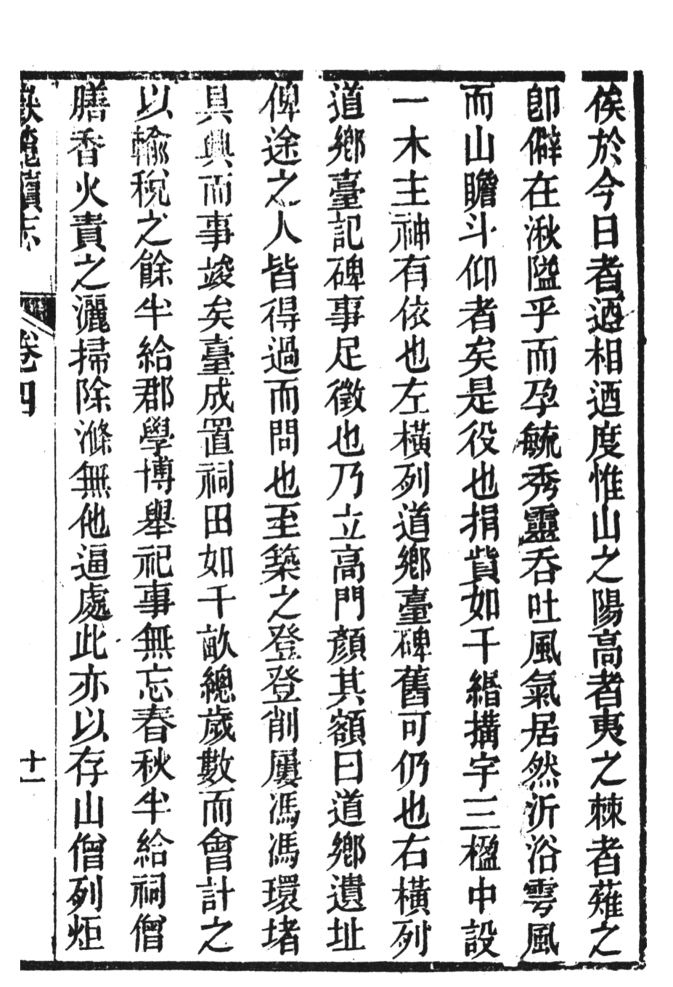 俟於今日者迺相迺度惟山之陽高者夷之棘者薙之
卽僻在湫隘乎而孕毓秀靈吞吐風氣居然沂浴雩風
而山瞻斗仰者矣是役也捐貲如千緡搆宇三楹中設
一木主神有依也左橫列道鄉臺碑舊可仍也右橫列
道鄉臺記碑事足徵也乃立高門顏其額曰道鄉遺址
俾途之人皆得過而問也至築之登登削屢馮馮環堵
具興而事竣矣臺成置祠田如千畝總歲數而會計之
以輸稅之餘半給郡學博舉祀事無忘春秋半給祠僧
膳香火責之灑掃除滌無他逼處此亦以存山僧列炬
嶽麓續志
卷四
十一